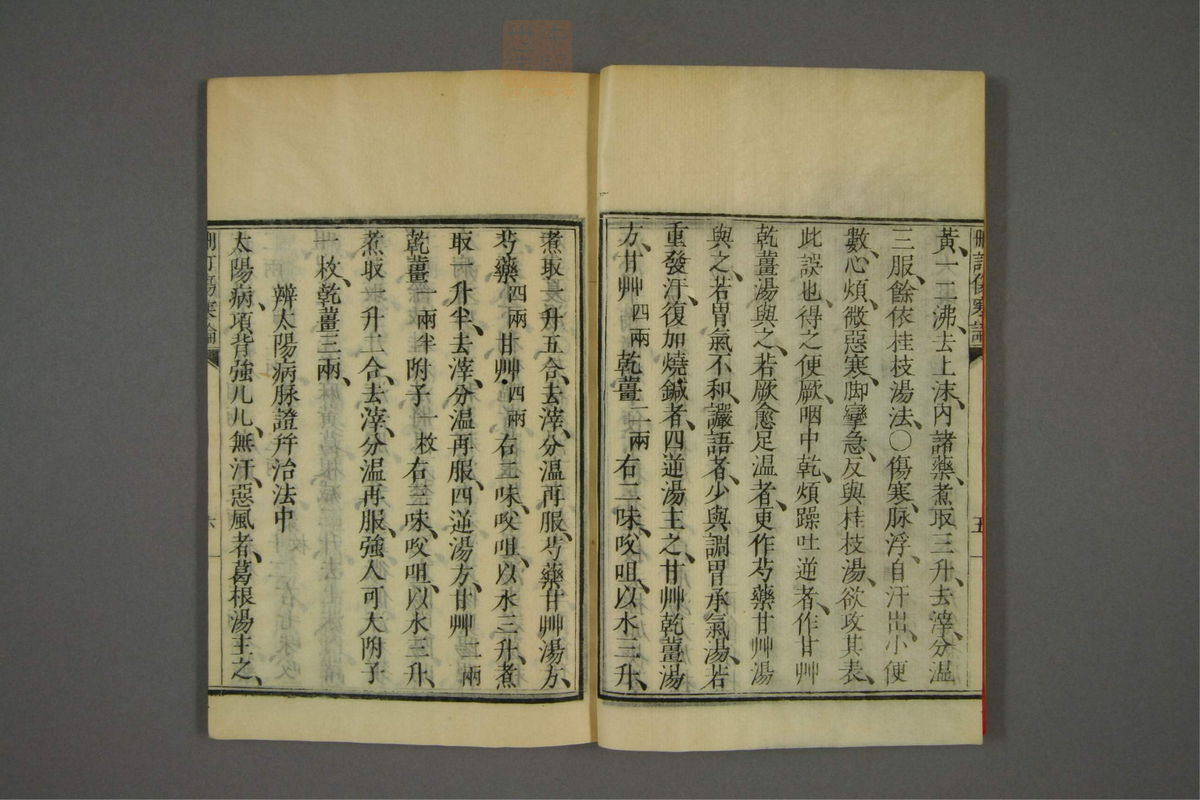 刪訂傷寒論 五
黃一二沸、去上沫、內諸藥、煮取三升、去滓、分温
三服、餘依桂枝湯法、○傷寒、脉浮、自汗出、小便
數、心煩、微惡寒、脚攣急、反與桂枝湯、欲攻其表、
此誤也、得之便厥、咽中乾、煩躁吐逆者、作甘艸
乾薑湯與之、若厥愈足温者、更作芍藥甘艸湯
與之、若胃氣不和、讝語者、少與調胃承氣湯、若
重發汗、復加燒鍼者、四逆湯主之、甘艸乾薑湯
方、甘艸四兩乾薑二兩右二味、㕮咀、以水三升、
煮取一升五合、去滓、分温再服、芍藥甘艸湯方、
芍藥四兩甘艸四兩右二味、㕮咀、以水三升、煮
取一升半、去滓、分温再服、四逆湯方、甘艸二兩
乾薑一兩半附子一枚右三味、㕮咀、以水三升、
煮取一升二合、去滓、分温再服、強人可大附子
一枚、乾薑三兩、
辨太陽病脉證并治法中
太陽病、項背強几几、無汗、惡風者、葛根湯主之、
刪訂傷寒論 六